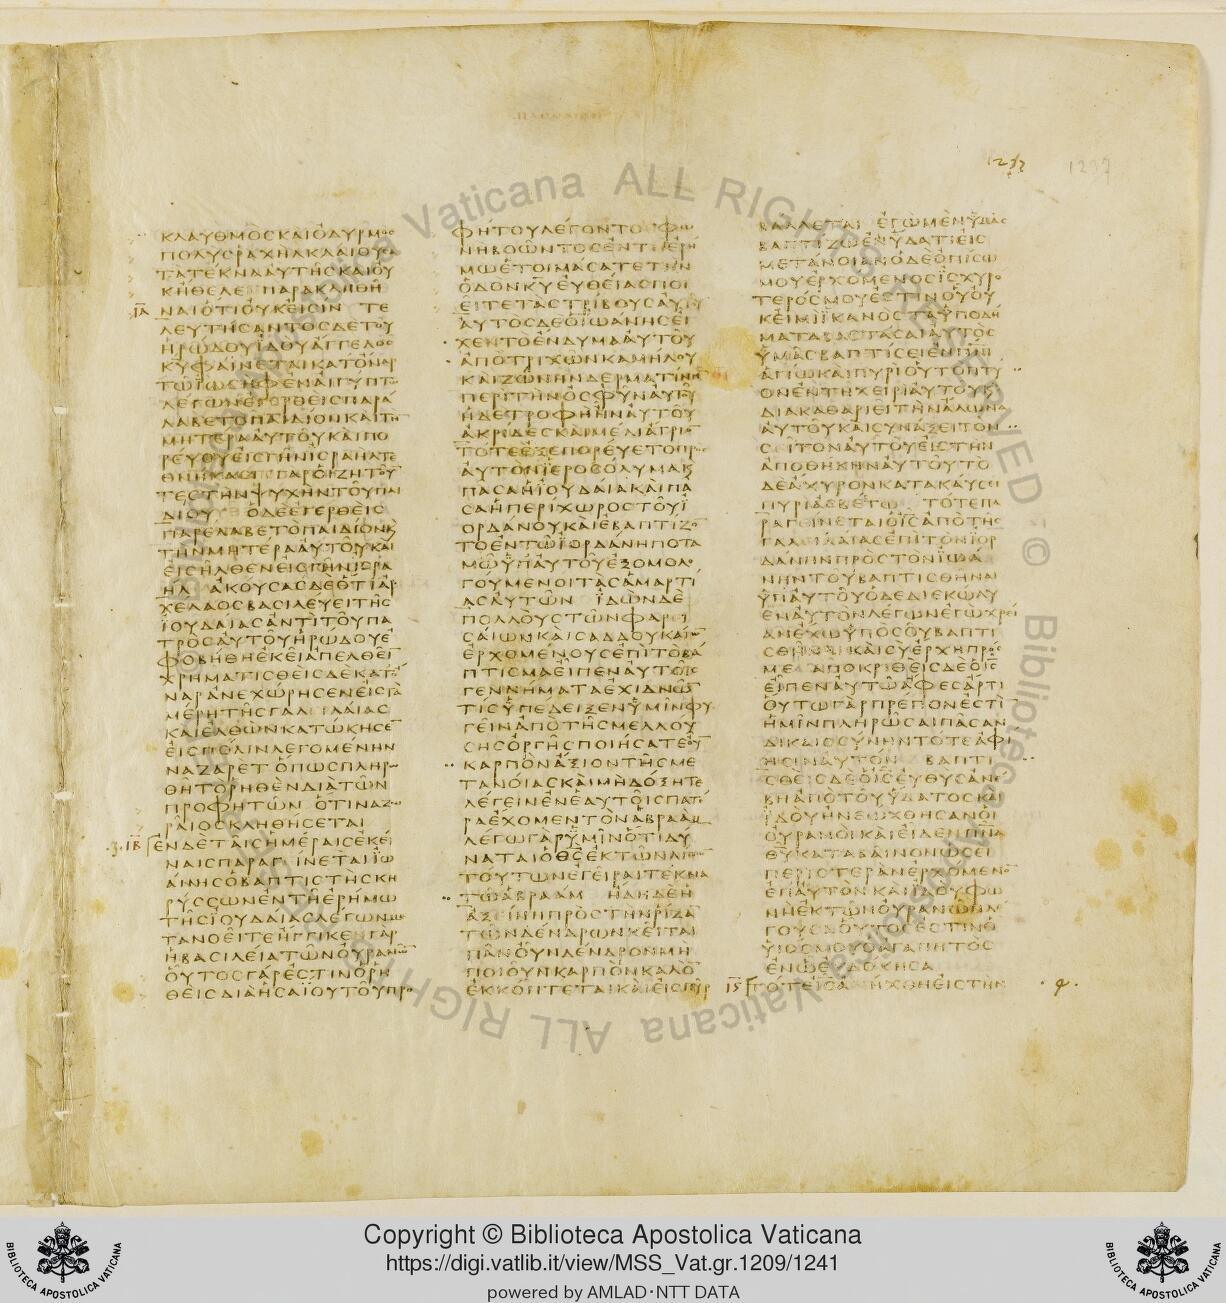 1237
ΚΛΑΥΘΜΟΣ ΚΑΙ ΟΔΥΡΜΟΣ
ΠΟΛΥΣ ΡΑΧΗΛ ΚΛΑΙΟΥΣΑ
ΤΑ ΤΕΚΝΑ ΑΥΤΗΣ ΚΑΙ ΟΥ
Κ ΗΘΕΛΕΝ ΠΑΡΑΚΛΗΘΗ
ΙΑ ΝΑΙ ΟΤΙ ΟΥΚ ΕΙΣΙΝ ΤΕ
ΛΕΥΤΗΣΑΝΤΟΣ ΔΕ ΤΟΥ
ΗΡΩΔΟΥ ΙΔΟΥ ΑΓΓΕΛΟΣ
ΚΥ ΦΑΙΝΕΤΑΙ ΚΑΤ ΟΝΑΡ
ΤΩ ΙΩΣΗΦ ΕΝ ΑΙΓΥΠΤΩ
ΛΕΓΩΝ ΕΓΕΡΘΕΙΣ ΠΑΡΑ
ΛΑΒΕ ΤΟ ΠΑΙΔΙΟΝ ΚΑΙ ΤΗ
ΜΗΤΕΡΑ ΑΥΤΟΥ ΚΑΙ ΠΟ
ΡΕΥΟΥ ΕΙΣ ΓΗΝ ΙΣΡΑΗΛ ΤΕ
ΘΝΗΚΑΣΙ ΓΑΡ ΟΙ ΖΗΤΟΥ
ΤΕΣ ΤΗΝ ΨΥΧΗΝ ΤΟΥ ΠΑΙ
ΔΙΟΥ Ο ΔΕ ΕΓΕΡΘΕΙΣ
ΠΑΡΕΛΑΒΕ ΤΟ ΠΑΙΔΙΟΝ Κ
ΤΗΝ ΜΗΤΕΡΑ ΑΥΤΟΥ ΚΑΙ
ΕΙΣΗΛΘΕΝ ΕΙΣ ΓΗΝ ΙΣΡΑ
ΗΛ ΑΚΟΥΣΑΣ ΔΕ ΟΤΙ ΑΡ
ΧΕΛΑΟΣ ΒΑΣΙΛΕΥΕΙ ΤΗΣ
ΙΟΥΔΑΙΑΣ ΑΝΤΙ ΤΟΥ ΠΑ
ΤΡΟΣ ΑΥΤΟΥ ΗΡΩΔΟΥ Ε
ΦΟΒΗΘΗ ΕΚΕΙ ΑΠΕΛΘΕΙ
ΧΡΗΜΑΤΙΣΘΕΙΣ ΔΕ ΚΑΤ Ο
ΝΑΡ ΑΝΕΧΩΡΗΣΕΝ ΕΙΣ ΤΑ
ΜΕΡΗ ΤΗΣ ΓΑΛΕΙΛΑΙΑΣ
ΚΑΙ ΕΛΘΩΝ ΚΑΤΩΚΗΣΕ
ΕΙΣ ΠΟΛΙΝ ΛΕΓΟΜΕΝΗΝ
ΝΑΖΑΡΕΤ ΟΠΩΣ ΠΛΗΡΩ
ΘΗ ΤΟ ΡΗΘΕΝ ΔΙΑ ΤΩΝ
ΠΡΟΦΗΤΩΝ ΟΤΙ ΝΑΖΩ
ΡΑΙΟΣ ΚΛΗΘΗΣΕΤΑΙ
ΙΒ ΕΝ ΔΕ ΤΑΙΣ ΗΜΕΡΑΙΣ ΕΚΕΙ
ΝΑΙΣ ΠΑΡΑΓΙΝΕΤΑΙ ΙΩ
ΑΝΗΣ Ο ΒΑΠΤΙΣΤΗΣ ΚΗ
ΡΥΣΣΩΝ ΕΝ ΤΗ ΕΡΗΜΩ
ΤΗΣ ΙΟΥΔΑΙΑΣ ΛΕΓΩΝ ΜΕ
ΤΑΝΟΕΙΤΕ ΗΓΓΙΚΕΝ ΓΑΡ
Η ΒΑΣΙΛΕΙΑ ΤΩΝ ΟΥΡΑΝΩ
ΟΥΤΟΣ ΓΑΡ ΕΣΤΙΝ Ο ΡΗ
ΘΕΙΣ ΔΙΑ ΗΣΑΙΟΥ ΤΟΥ ΠΡΟ
ΦΗΤΟΥ ΛΕΓΟΝΤΟΣ ΦΩ
ΝΗ ΒΟΩΝΤΟΣ ΕΝ ΤΗ ΕΡΗ
ΜΩ ΕΤΟΙΜΑΣΑΤΕ ΤΗΝ
ΟΔΟΝ ΚΥ ΕΥΘΕΙΑΣ ΠΟΙ
ΕΙΤΕ ΤΑΣ ΤΡΙΒΟΥΣ ΑΥΤΟΥ
ΑΥΤΟΣ ΔΕ Ο ΙΩΑΝΗΣ ΕΙ
ΧΕΝ ΤΟ ΕΝΔΥΜΑ ΑΥΤΟΥ
ΑΠΟ ΤΡΙΧΩΝ ΚΑΜΗΛΟΥ
ΚΑΙ ΖΩΝΗΝ ΔΕΡΜΑΤΙΝΗ
ΠΕΡΙ ΤΗΝ ΟΣΦΥΝ ΑΥΤΟΥ
Η ΔΕ ΤΡΟΦΗ ΗΝ ΑΥΤΟΥ
ΑΚΡΙΔΕΣ ΚΑΙ ΜΕΛΙ ΑΓΡΙΟ
ΤΟΤΕ ΕΞΕΠΟΡΕΥΕΤΟ ΠΡΟΣ
ΑΥΤΟΝ ΙΕΡΟΣΟΛΥΜΑ Κ
ΠΑΣΑ Η ΙΟΥΔΑΙΑ ΚΑΙ ΠΑ
ΣΑ Η ΠΕΡΙΧΩΡΟΣ ΤΟΥ Ι
ΟΡΔΑΝΟΥ ΚΑΙ ΕΒΑΠΤΙΖΟ
ΤΟ ΕΝ ΤΩ ΙΟΡΔΑΝΗ ΠΟΤΑ
ΜΩ ΥΠ ΑΥΤΟΥ ΕΞΟΜΟΛΟ
ΓΟΥΜΕΝΟΙ ΤΑΣ ΑΜΑΡΤΙ
ΑΣ ΑΥΤΩΝ ΙΔΩΝ ΔΕ
ΠΟΛΛΟΥΣ ΤΩΝ ΦΑΡΙ
ΣΑΙΩΝ ΚΑΙ ΣΑΔΔΟΥΚΑΙΩ
ΕΡΧΟΜΕΝΟΥΣ ΕΠΙ ΤΟ ΒΑ
ΠΤΙΣΜΑ ΕΙΠΕΝ ΑΥΤΟΙΣ
ΓΕΝΝΗΜΑΤΑ ΕΧΙΔΝΩ
ΤΙΣ ΥΠΕΔΕΙΞΕΝ ΥΜΙΝ ΦΥ
ΓΕΙΝ ΑΠΟ ΤΗΣ ΜΕΛΛΟΥ
ΣΗΣ ΟΡΓΗΣ ΠΟΙΗΣΑΤΕ ΟΥ
ΚΑΡΠΟΝ ΑΞΙΟΝ ΤΗΣ ΜΕ
ΤΑΝΟΙΑΣ ΚΑΙ ΜΗ ΔΟΞΗΤΕ
ΛΕΓΕΙΝ ΕΝ ΕΑΥΤΟΙΣ ΠΑΤΕ
ΡΑ ΕΧΟΜΕΝ ΤΟΝ ΑΒΡΑΑΜ
ΛΕΓΩ ΓΑΡ ΥΜΙΝ ΟΤΙ ΔΥ
ΝΑΤΑΙ Ο ΘΣ ΕΚ ΤΩΝ ΛΙΘΩ
ΤΟΥΤΩΝ ΕΓΕΙΡΑΙ ΤΕΚΝΑ
ΤΩ ΑΒΡΑΑΜ ΗΔΗ ΔΕ Η
ΑΞΕΙΝΗ ΠΡΟΣ ΤΗΝ ΡΙΖΑ
ΤΩΝ ΔΕΝΔΡΩΝ ΚΕΙΤΑΙ
ΠΑΝ ΟΥΝ ΔΕΝΔΡΟΝ ΜΗ
ΠΟΙΟΥΝ ΚΑΡΠΟΝ ΚΑΛΟ
ΕΚΚΟΠΤΕΤΑΙ ΚΑΙ ΕΙΣ ΠΥΡ
ΒΑΛΛΕΤΑΙ ΕΓΩ ΜΕΝ ΥΜΑΣ
ΒΑΠΤΙΖΩ ΕΝ ΥΔΑΤΙ ΕΙΣ
ΜΕΤΑΝΟΙΑΝ Ο ΔΕ ΟΠΙΣΩ
ΜΟΥ ΕΡΧΟΜΕΝΟΣ ΙΣΧΥΡΟ
ΤΕΡΟΣ ΜΟΥ ΕΣΤΙΝ ΟΥ ΟΥ
Κ ΕΙΜΙ ΙΚΑΝΟΣ ΤΑ ΥΠΟΔΗ
ΜΑΤΑ ΒΑΣΤΑΣΑΙ ΑΥΤΟΣ
ΥΜΑΣ ΒΑΠΤΙΣΕΙ ΕΝ ΠΝΙ
ΑΓΙΩ ΚΑΙ ΠΥΡΙ ΟΥ ΤΟ ΠΤΥ
ΟΝ ΕΝ ΤΗ ΧΕΙΡΙ ΑΥΤΟΥ Κ
ΔΙΑΚΑΘΑΡΙΕΙ ΤΗΝ ΑΛΩΝΑ
ΑΥΤΟΥ ΚΑΙ ΣΥΝΑΞΕΙ ΤΟΝ
ΣΕΙΤΟΝ ΑΥΤΟΥ ΕΙΣ ΤΗΝ
ΑΠΟΘΗΚΗΝ ΑΥΤΟΥ ΤΟ
ΔΕ ΑΧΥΡΟΝ ΚΑΤΑΚΑΥΣΕΙ
ΠΥΡΙ ΑΣΒΕΣΤΩ ΤΟΤΕ ΠΑ
ΡΑΓΕΙΝΕΤΑΙ Ο ΙΣ ΑΠΟ ΤΗΣ
ΓΑΛΕΙΛΑΙΑΣ ΕΠΙ ΤΟΝ ΙΟΡ
ΔΑΝΗΝ ΠΡΟΣ ΤΟΝ ΙΩΑ
ΝΗΝ ΤΟΥ ΒΑΠΤΙΣΘΗΝΑΙ
ΥΠ ΑΥΤΟΥ Ο ΔΕ ΔΙΕΚΩΛΥ
ΕΝ ΑΥΤΟΝ ΛΕΓΩΝ ΕΓΩ ΧΡΕΙ
ΑΝ ΕΧΩ ΥΠΟ ΣΟΥ ΒΑΠΤΙ
ΣΘΗΝΑΙ ΚΑΙ ΣΥ ΕΡΧΗ ΠΡΟΣ
ΜΕ ΑΠΟΚΡΙΘΕΙΣ ΔΕ Ο ΙΣ
ΕΙΠΕΝ ΑΥΤΩ ΑΦΕΣ ΑΡΤΙ
ΟΥΤΩ ΓΑΡ ΠΡΕΠΟΝ ΕΣΤΙ
ΗΜΙΝ ΠΛΗΡΩΣΑΙ ΠΑΣΑΝ
ΔΙΚΑΙΟΣΥΝΗΝ ΤΟΤΕ ΑΦΙ
ΗΣΙΝ ΑΥΤΟΝ ΒΑΠΤΙ
ΣΘΕΙΣ ΔΕ Ο ΙΣ ΕΥΘΥΣ ΑΝΕ
ΒΗ ΑΠΟ ΤΟΥ ΥΔΑΤΟΣ ΚΑΙ
ΙΔΟΥ ΗΝΕΩΧΘΗΣΑΝ ΟΙ
ΟΥΡΑΝΟΙ ΚΑΙ ΕΙΔΕΝ ΠΝΑ
ΘΥ ΚΑΤΑΒΑΙΝΟΝ ΩΣΕΙ
ΠΕΡΙΣΤΕΡΑΝ ΕΡΧΟΜΕΝΟ
ΕΠ ΑΥΤΟΝ ΚΑΙ ΙΔΟΥ ΦΩ
ΝΗ ΕΚ ΤΩΝ ΟΥΡΑΝΩΝ ΛΕ
ΓΟΥΣΑ ΟΥΤΟΣ ΕΣΤΙΝ Ο
ΥΙΟΣ ΜΟΥ Ο ΑΓΑΠΗΤΟΣ
ΕΝ Ω ΕΥΔΟΚΗΣΑ
ΙϚ ΤΟΤΕ Ο ΙΣ ΑΝΗΧΘΗ ΕΙΣ ΤΗΝ
Copyright © Biblioteca Apostolica Vaticana
https://digi.vatlib.it/view/MSS_Vat.gr.1209/1241
powered by AMLAD·NTT DATA
BIBLIOTECA APOSTOLICA VATICANA
BIBLIOTECA APOSTOLICA VATICANA